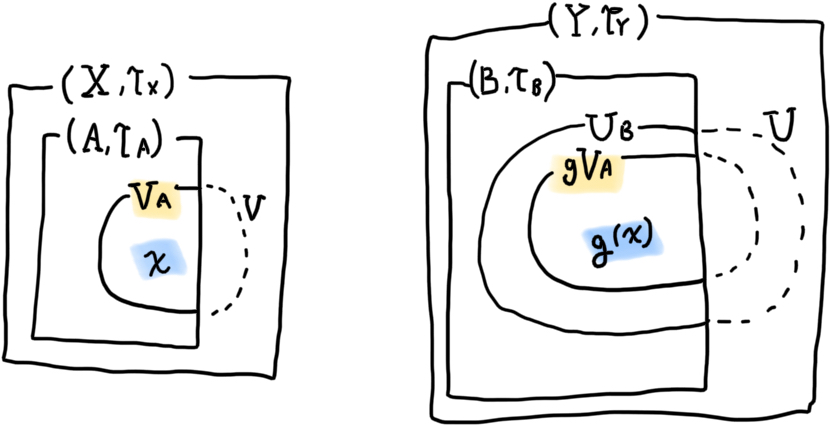 (X,τx)
(A,τA)
VA
V
x
(Y,τY)
(B,τB)
UB
U
gVA
g(x)